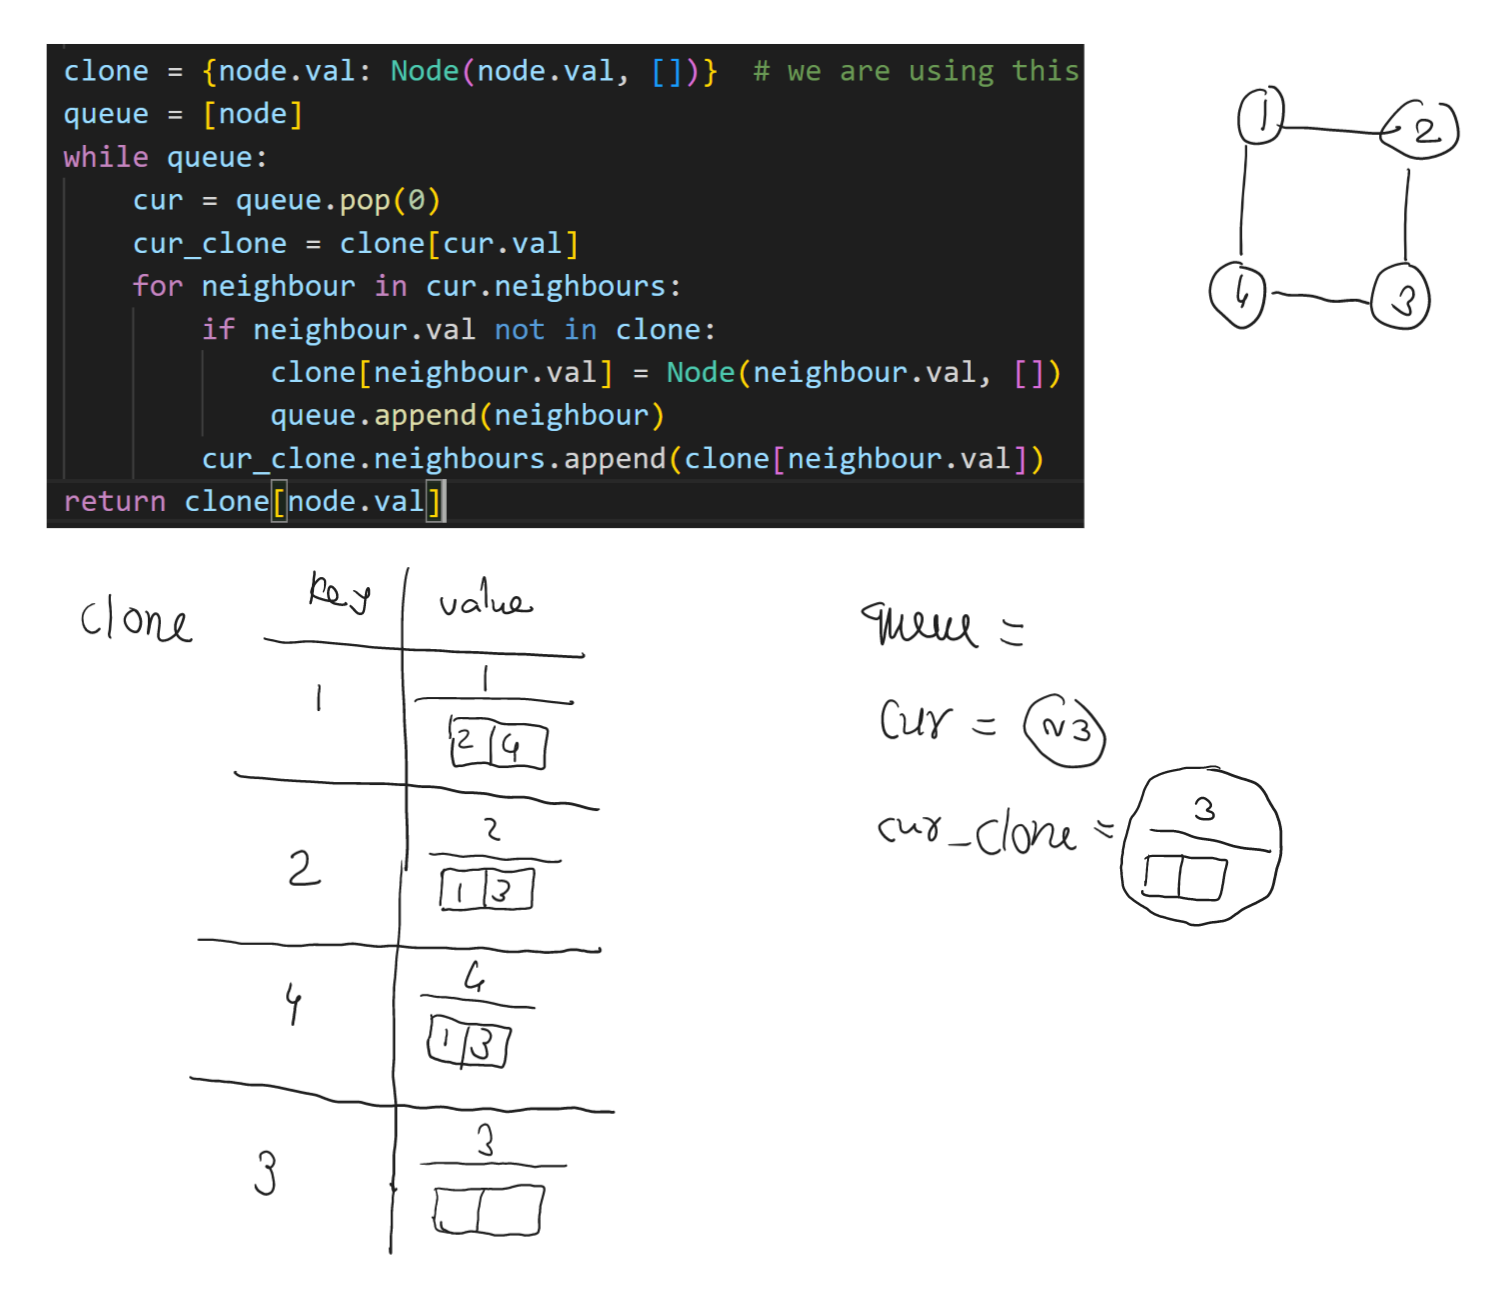 clone = {node.val: Node(node.val, [])}  # we are using this
queue = [node]
while queue:
    cur = queue.pop(0)
    cur_clone = clone[cur.val]
    for neighbour in cur.neighbours:
        if neighbour.val not in clone:
            clone[neighbour.val] = Node(neighbour.val, [])
            queue.append(neighbour)
        cur_clone.neighbours.append(clone[neighbour.val])
return clone[node.val]
1
2
4
3
clone
key value
1
1
2 4
2
2
1 3
4
4
1 3
3
3
queue =
cur = N3
cur_clone =
3